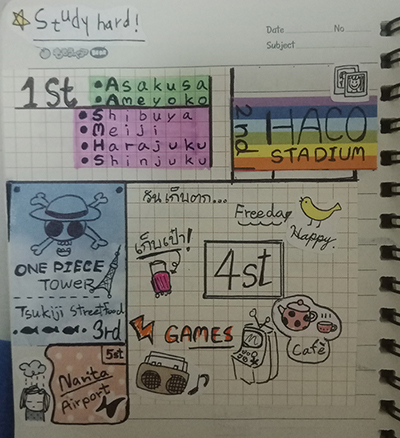 Study hard!
Date No
Subject
1st
• Asakusa
• Ameyoko
• Shibuya
• Meiji
• Harajuku
• Shinjuku
2nd
HACO
STADIUM
ONE PIECE
TOWER
Tsukiji Street Food
3rd
วันเก็บตก...
Freeday
Happy
เก็บเป๋า!
4st
GAMES
Café
5st
Narita
Airport